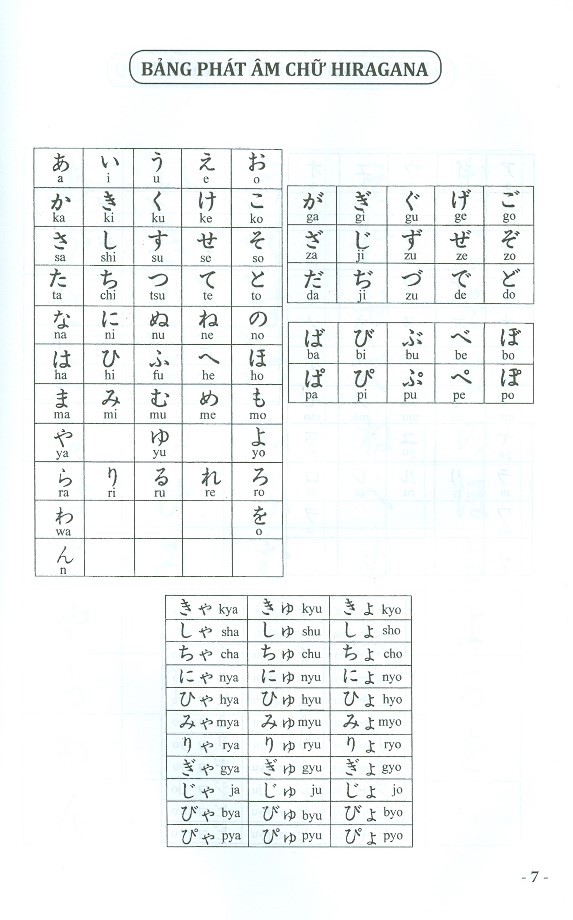 BẢNG PHÁT ÂM CHỮ HIRAGANA
あ い う え お
a i u e o
か き く け こ
ka ki ku ke ko
さ し す せ そ
sa shi su se so
た ち つ て と
ta chi tsu te to
な に ぬ ね の
na ni nu ne no
は ひ ふ へ ほ
ha hi fu he ho
ま み む め も
ma mi mu me mo
や ゆ よ
ya yu yo
ら り る れ ろ
ra ri ru re ro
わ を
wa o
ん
n
が ぎ ぐ げ ご
ga gi gu ge go
ざ じ ず ぜ ぞ
za ji zu ze zo
だ ぢ づ で ど
da ji zu de do
ば び ぶ べ ぼ
ba bi bu be bo
ぱ ぴ ぷ ぺ ぽ
pa pi pu pe po
きゃ kya きゅ kyu きょ kyo
しゃ sha しゅ shu しょ sho
ちゃ cha ちゅ chu ちょ cho
にゃ nya にゅ nyu にょ nyo
ひゃ hya ひゅ hyu ひょ hyo
みゃ mya みゅ myu みょ myo
りゃ rya りゅ ryu りょ ryo
ぎゃ gya ぎゅ gyu ぎょ gyo
じゃ ja じゅ ju じょ jo
びゃ bya びゅ byu びょ byo
ぴゃ pya ぴゅ pyu ぴょ pyo
- 7 -